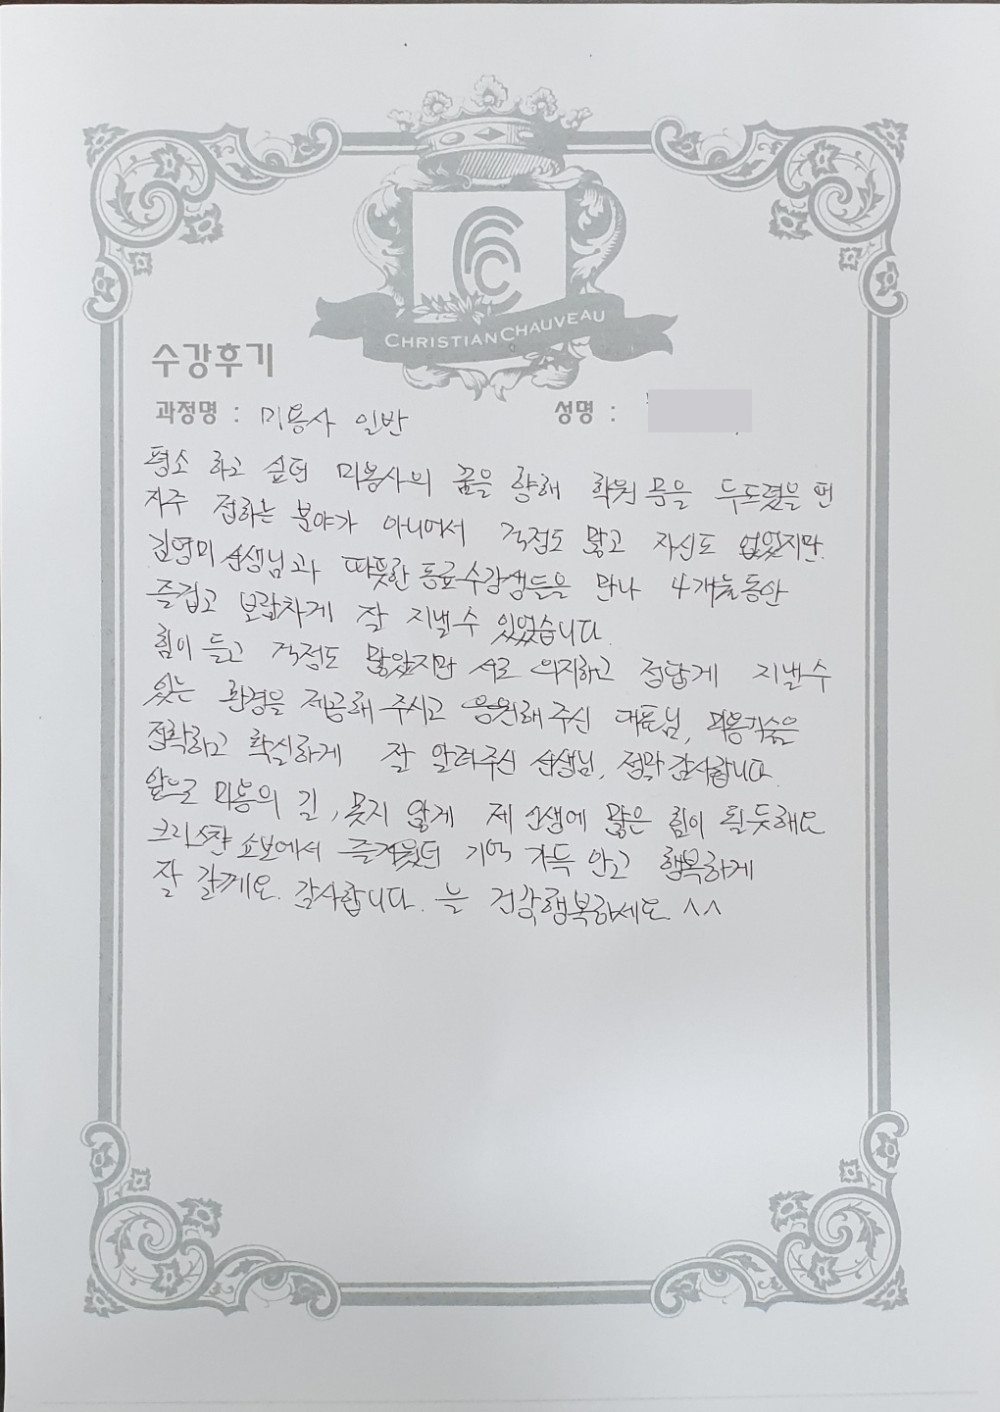 CHRISTIAN CHAUVEAU
수강후기
과정명 : 미용사 일반 성명 :
평소 하고 싶던 미용사의 꿈을 향해 학원 문을 두드렸을 땐
자주 접하는 분야가 아니여서 걱정도 많고 자신도 없었지만
김영미 선생님과 따뜻한 동료수강생들을 만나 4개월동안
즐겁고 보람차게 잘 지낼수 있었습니다.
힘이 들고 걱정도 많았지만 서로 의지하고 정답게 지낼수
있는 환경을 제공해 주시고 응원해 주신 대표님, 미용기술을
정확하고 확실하게 잘 알려주신 선생님, 정말 감사합니다.
앞으로 미용의 길, 못지 않게 제 인생에 많은 힘이 될듯해요
크리스찬 쇼보에서 즐거웠던 기억 가득 안고 행복하게
잘 갈께요. 감사합니다. 늘 건강행복하세요 ^^